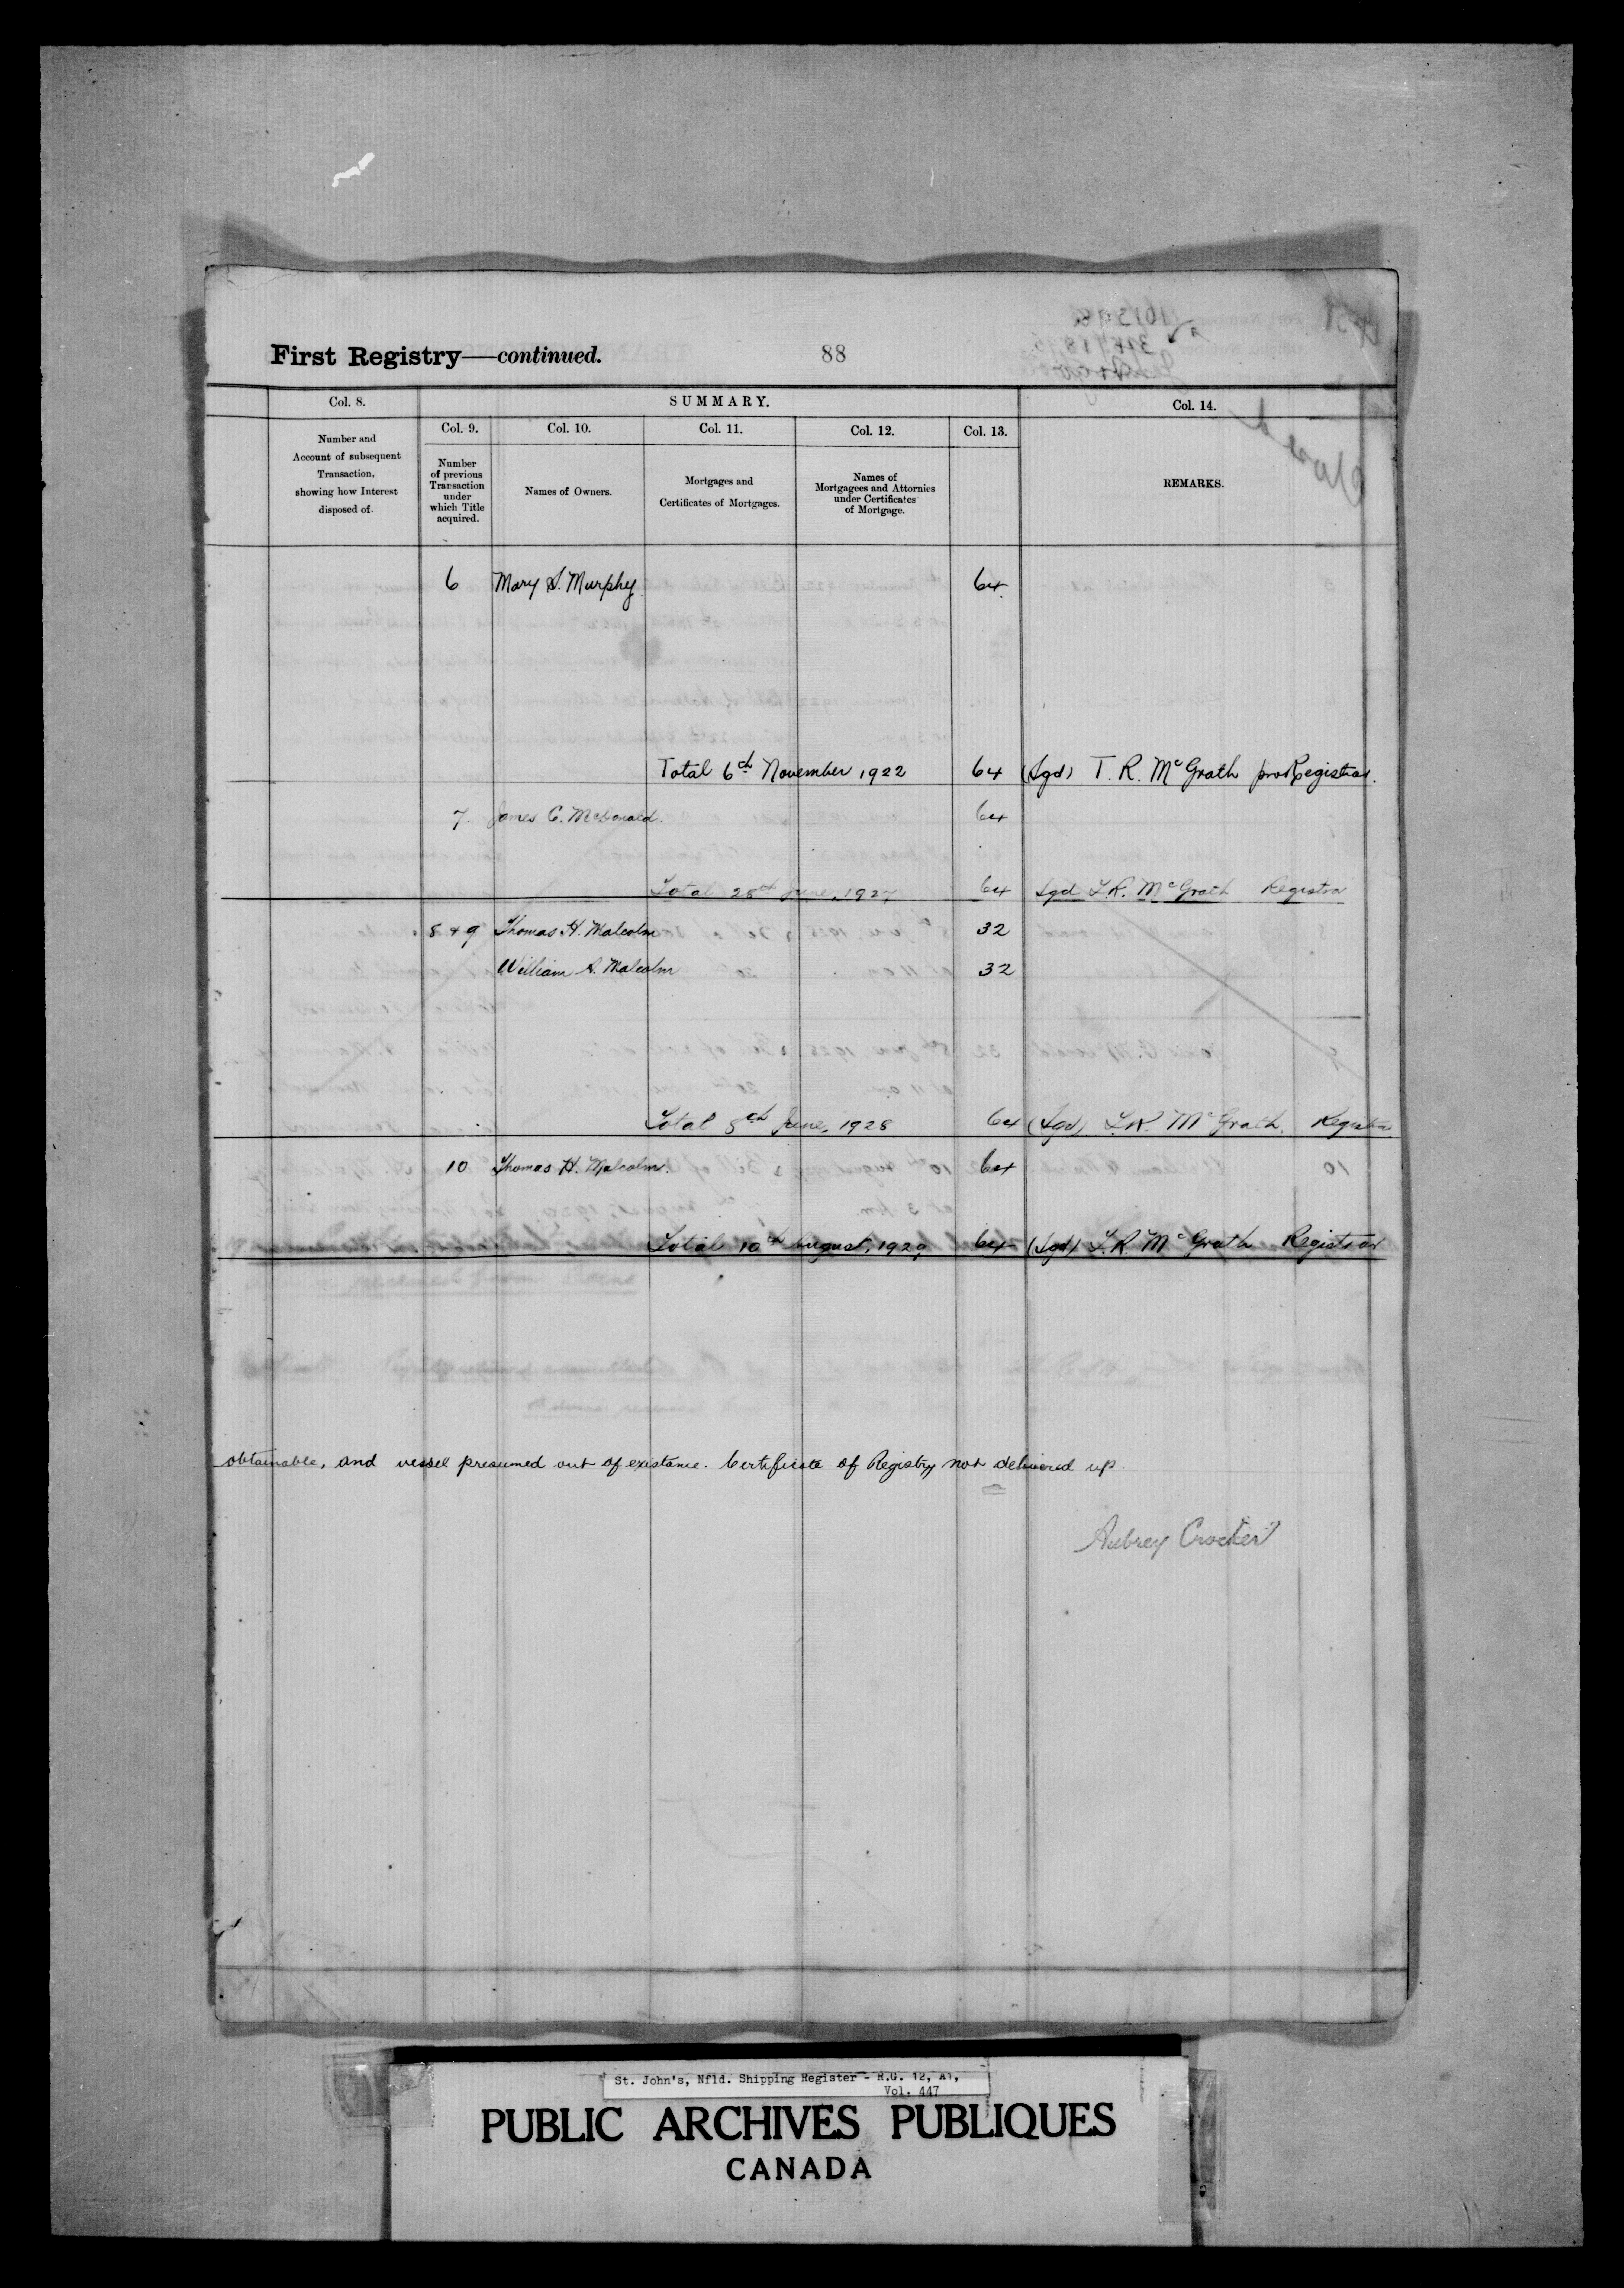 First Registry—continued.
88
Col. 8.
SUMMARY.
Col. 14.
Col. 9.
Col. 10.
Col. 11.
Col. 12.
Col. 13.
Number and
Account of subsequent
Transaction,
showing how Interest
disposed of.
Number
of previous
Transaction
under
which Title
acquired.
Names of Owners.
Mortgages and
Certificates of Mortgages.
Names of
Mortgagees and Attornies
under Certificates
of Mortgage.
REMARKS.
6 Mary S. Murphy 64.
Total 6th November 1922 64 (Sgd) T. R. McGrath pro Registrar.
7. James C. McDonald. 64
Total 28th June, 1927 64 Sgd T.R. McGrath Registrar
8 & 9 Thomas H. Malcolm 32
William A. Malcolm 32
Total 8th June, 1928 64 (Sgd) T.R. McGrath. Registrar.
10 Thomas H. Malcolm. 64
Total 10th August, 1929 64 (Sgd) T.R. McGrath Registrar
obtainable, and vessel presumed out of existance. Certificate of Registry not delivered up.
Aubrey Crocker
St. John's, Nfld. Shipping Register - R.G. 12, A1,
Vol. 447
PUBLIC ARCHIVES PUBLIQUES
CANADA